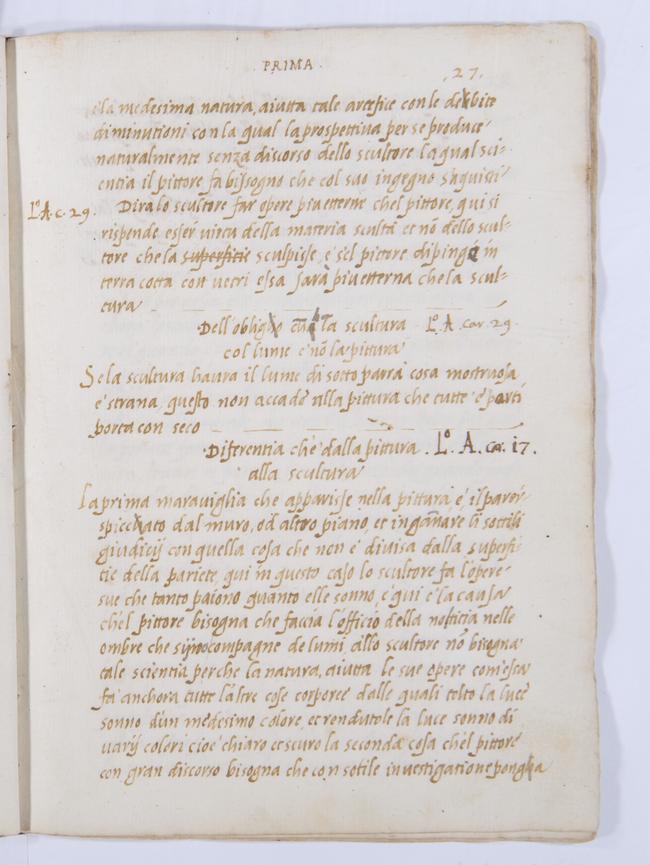 PRIMA.
27.
e la medesima natura, aiutta tale artefice con le debite
diminutioni con la qual la prospettiva per se produce
naturalmente senza discorso dello scultore la qual sci=
entia il pittore fa bissogno che col suo ingegno s'aquisti
Lº A. c. 29.
Dira lo scultore far opere piu etterne chel pittore, qui si
rispende esser virtu della materia sculta et nō dello scul=
tore che la superficie sculpisse, e s'el pictore dipinge in
terra cotta con vetri essa sara piu etterna che la scul=
tura
Dell'obligo la scultura Lº A. Car. 29.
col lume e nō la pittura
Se la scultura havra il lume di sotto parra cosa mostruosa
e strana, questo non accade alla pittura che tutte e parti
porta con seco
Diferentia ch'è dalla pittura. Lº. A. Car. 17.
alla scultura
La prima maraviglia che apparisse nella pittura, é, il parer
spiccato dal muro, od altro piano, et ingānare li sottili
giudicij con quella cosa che non e' divisa dalla superfi=
tie della pariete, qui in questo caso lo scultore fa l'opere
sue che tanto paiono quanto elle sonno, e qui e la causa
ch'el pittore bisogna che faccia l'officio della notitia nelle
ombre che compagne de lumi, allo scultore nō bisogna
tale scientia perche la natura, aiutta le sue opere com'essa
fa anchora tutte l'altre cose corporee dalle quali tolto la luce
sonno d'un medesimo colore, et rendutole la luce sonno di
varij colori cioe' chiaro et scuro la seconda cosa ch'el pittore
con gran discorso bisogna che con sotile investigatione ponga